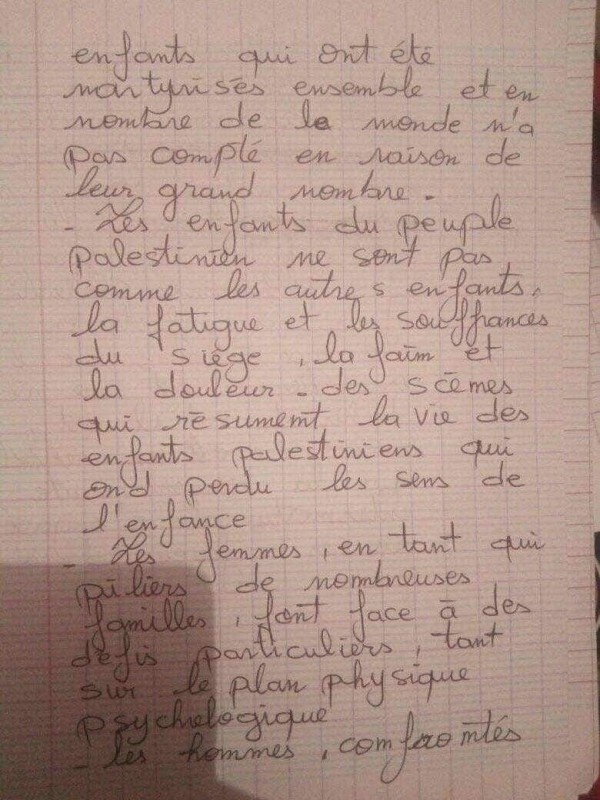 enfants qui ont été
martyrisés ensemble et en
nombre de le monde n'a
pas compté en raison de
leur grand nombre.
- Les enfants du peuple
palestinien ne sont pas
comme les autres enfants,
la fatigue et les souffrances
du siège, la faim et
la douleur. des scèmes
qui résument la vie des
enfants palestiniens qui
ond perdu les sens de
l'enfance
- Les femmes, en tant qui
piliers de nombreuses
familles, font face à des
défis particuliers, tant
sur le plan physique
psychologique
- les hommes, confrontés